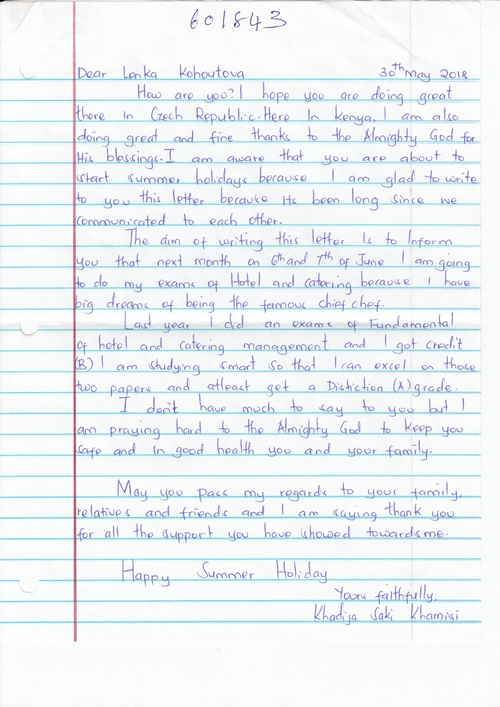 601843
Dear Lenka Kohoutova 30th May 2018
How are you? I hope you are doing great
there in Czech Republic. Here in Kenya, I am also
doing great and fine thanks to the Almighty God for
His blessings. I am aware that you are about to
start summer holidays because I am glad to write
to you this letter because its been long since we
communicated to each other.
The aim of writing this letter is to inform
you that next month on 6th and 7th of June I am going
to do my exams of Hotel and catering because I have
big dreams of being the famous chief chef.
Last year I did an exams of Fundamental
of hotel and catering management and I got credit
(B) I am studying smart so that I can excel on those
two papers and atleast get a Distiction (A) grade.
I don't have much to say to you but I
am praying hard to the Almighty God to keep you
safe and in good health you and your family.
May you pass my regards to your family,
relatives and friends and I am saying thank you
for all the support you have showed towards me.
Happy Summer Holiday
Yours faithfully,
Khadija Saki Khamisi